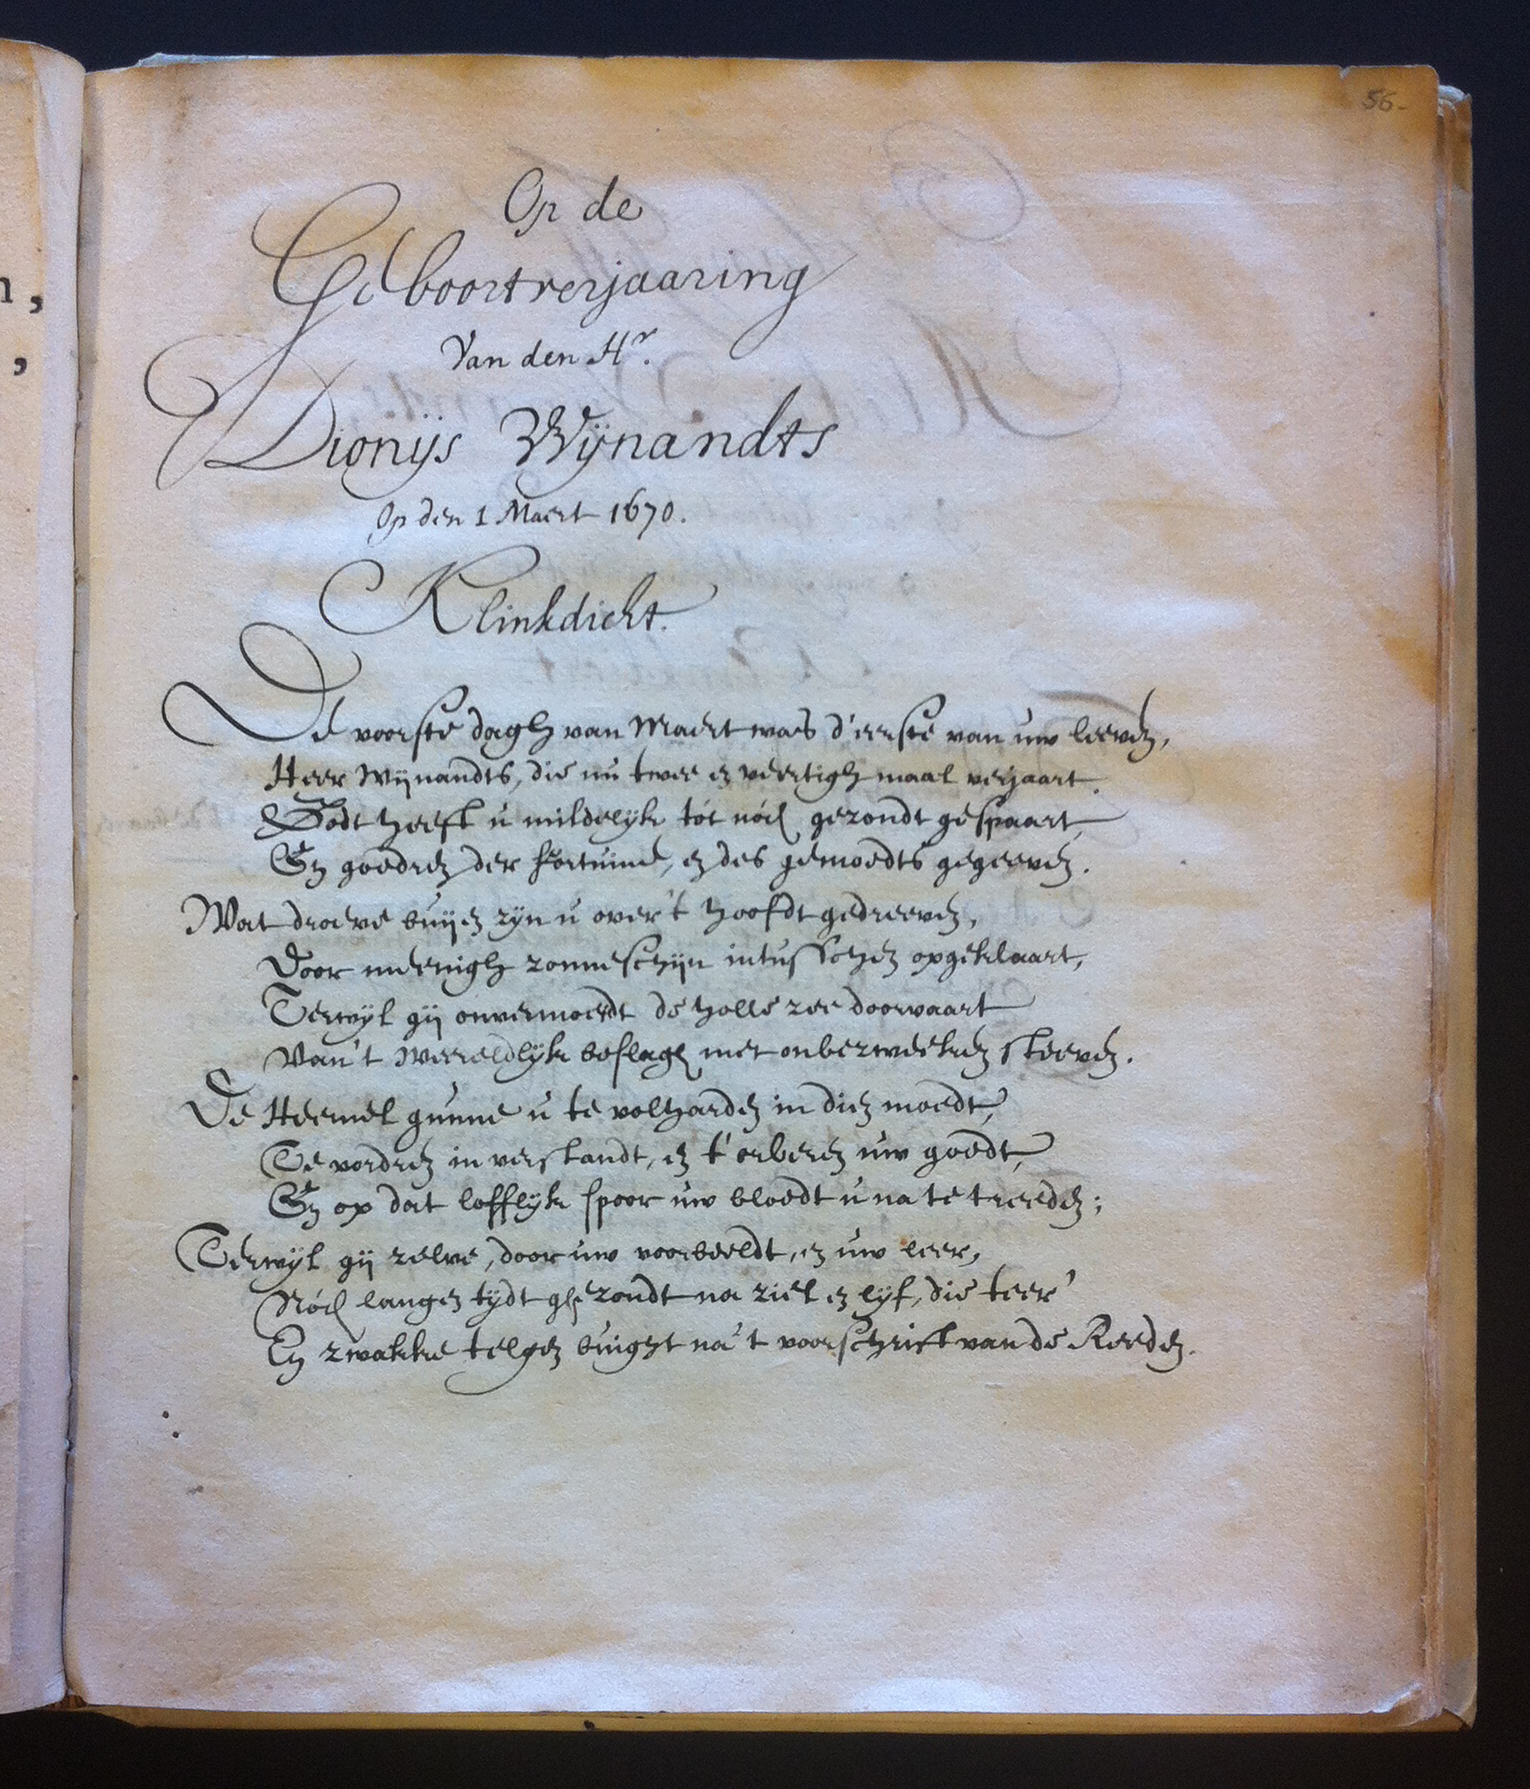 56-
Op de
Geboortverjaaring
Van den Hr.
Dionijs Wijnandts
Op den 1 Maert 1670.
Klinkdicht.
De voorste dagh van Maert was d'eerste van uw leeven,
Heer Wijnandts, die nu twee en veertigh maal verjaart.
Godt heeft u mildelijk tót nóch gezondt gespaart,
En goedren der fortuine, en des gemoedts gegeeven.
Wat droeve buijen zijn u over't hoofdt gedreeven,
Door meenigh zonneschijn intusschen opgeklaart,
Terwijl gij onvermoeidt de holle zee doorvaart
Van't weereldlijk beslagh met onbezweeken steeven.
De Heemel gunne u te volharden in dien moedt,
Te vordren in verstandt, en t'orberen uw goedt,
En op dat lofflijk spoor uw bloedt u na te treeden;
Terwijl gij zelve, door uw voorbeeldt, en uw leer,
Nóch langen tijdt ghezondt na ziel en lijf, die teer'
En zwakke telgen buight na't voorschrift van de Reeden.